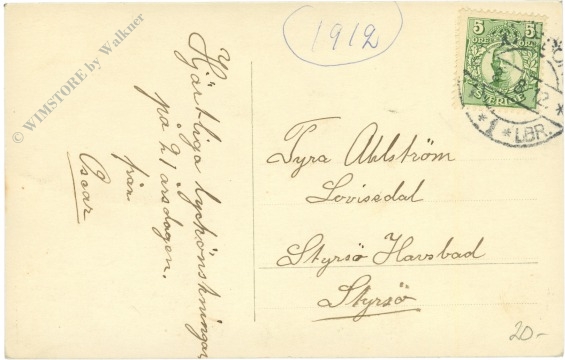 © WIMSTORE by Walkner
1912
Hjärtliga lyckönskningar
på 21 årsdagen.
från
Oscar
5 5
SVERIGE
12
* 1 * LBR. *
Tyra Ahlström
Lovisedal
Styrsö Havsbad
Styrsö
20-